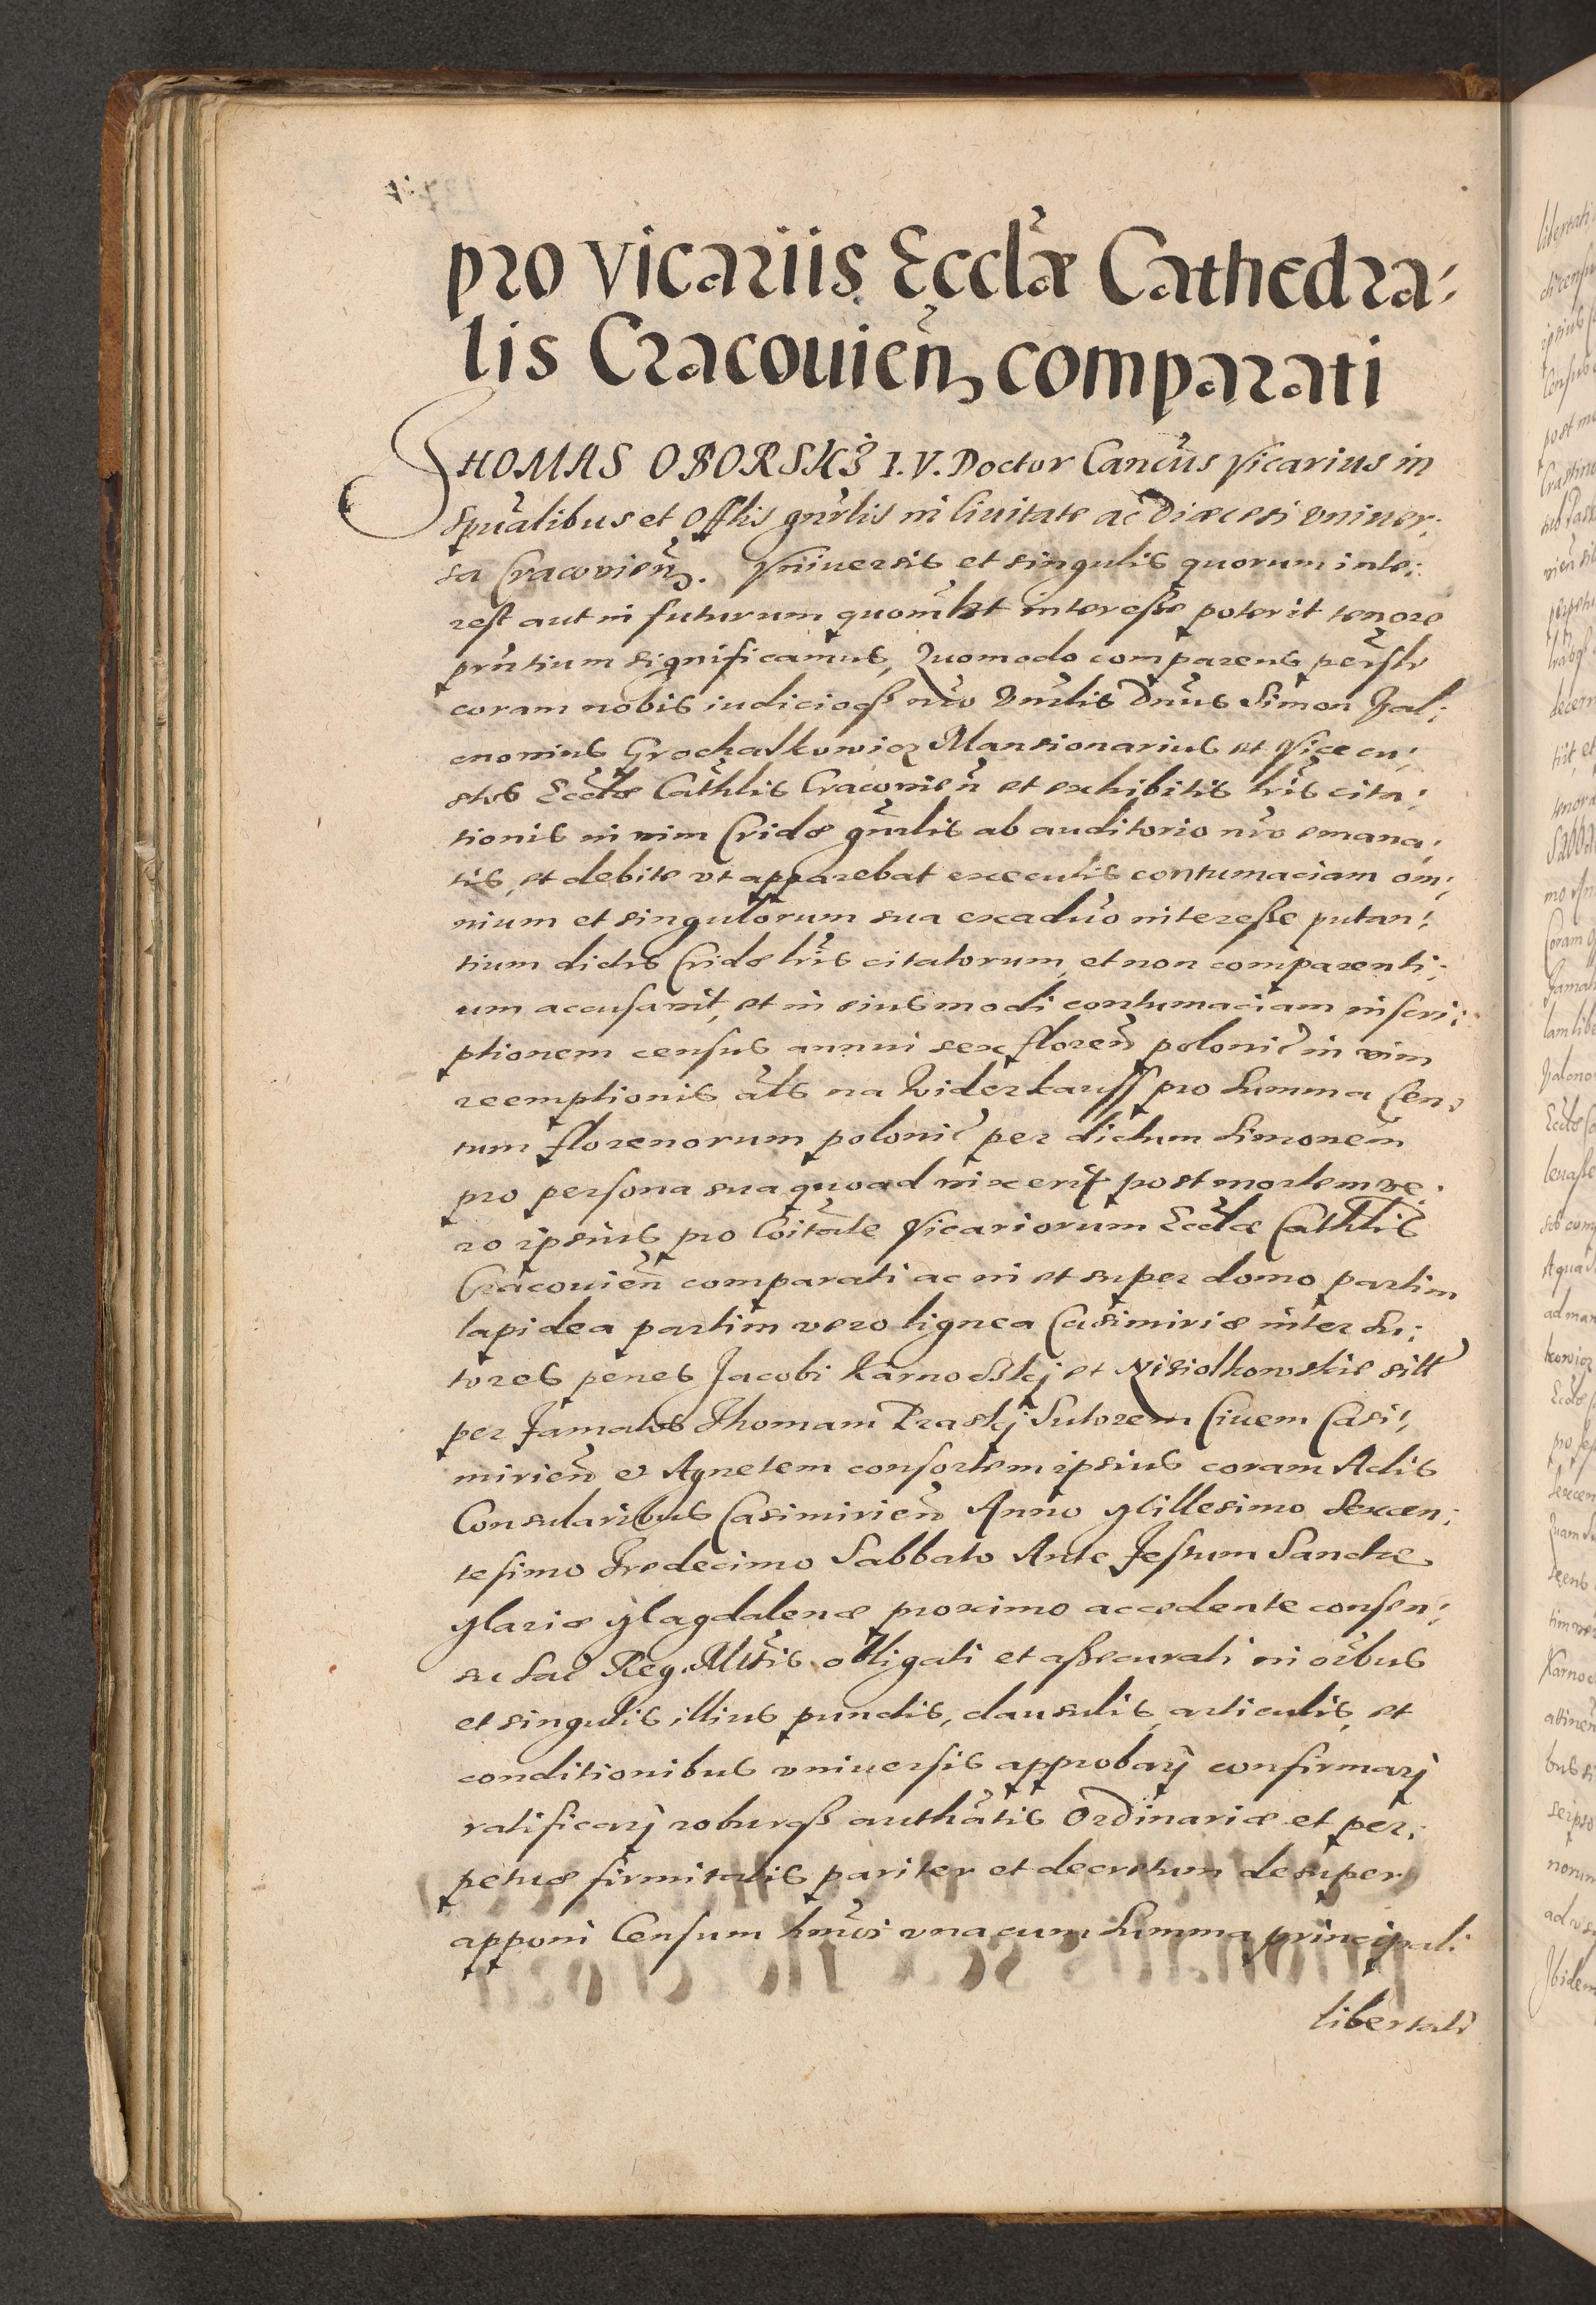 pro vicariis Ecclæ Cathedra-
lis Cracouien̄, comparati
THOMAS OBORSKI I. V. Doctor Cancus Vicarius in
Spūalibus et Offlis gnrlis in Ciuitate ac Diæcesi vniuer-
sa Cracovien̄. Vniuersis et singulis quorum inte-
rest aut in futurum quomłbt interesse poterit tenore
pntium significamus, Quomodo comparens perslr
coram nobis iudicioqß nro Vnrlis Dnus Simon Val-
enonius Grochalkowicz Mansionarius et Vice cu-
stos Ecclæ Cathlis Cracovien̄ et exhibitis lris cita-
tionis in vim Cridæ gnrlis ab auditorio nro emana-
tis, et debite vt apparebat executis contumaciam om-
nium et singulorum sua exaduo interesse putan-
tium dictis Cridæ lris citatorum, et non comparenti-
um accusauit, et in eiusmodi contumaciam inscri-
ptionem census annui sex floren̄ poloni in vim
reemptionis als na Widerkauff pro Summa Cen-
tum florenorum poloni per dictum Simonem
pro persona sua quoad vixerit post mortem ve-
ro ipsius pro Coitate Vicariorum Ecclæ Cathlis
Cracouien̄ comparati ac in et super domo partim
lapidea partim vero lignea Casimiriæ inter Su-
tores penes Jacobi Karnodskj et Nisiolkowskie sitt
per Famatos Thomam Praskj Sutorem Ciuem Casi-
mirien̄ et Agnetem consortem ipsius coram Actis
Consularibus Casimirien̄ Anno Millesimo Sexcen-
tesimo Tredecimo Sabbato Ante Festum Sanctæ
Mariæ Magdalenæ proximo accedente consen-
su Sac Reg. Mttis obligati et assecurati in oibus
et singulis illius punctis, clausulis, articulis, et
conditionibus vniuersis approbarj confirmarj
ratificarj roburqß authatis Ordinariæ et per-
petuæ firmitatis pariter et decretum desuper
apponi Censum hmoi vna cum Summa principali
libertati